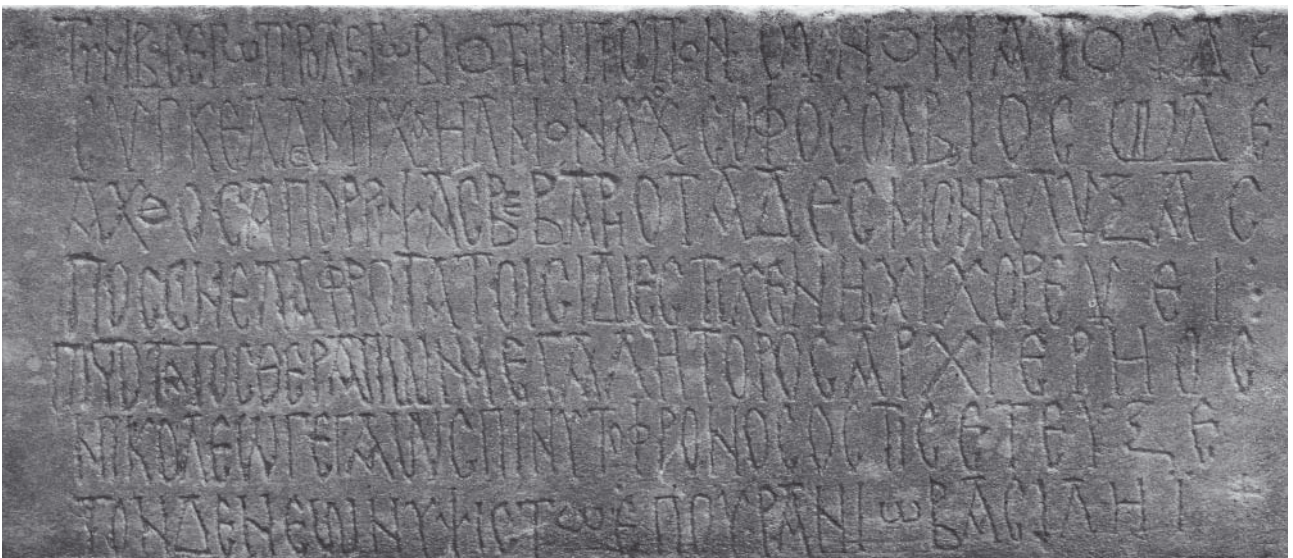 ΤΥΜΒΟC ΕΡΩ ΠΡΟΛΕΓΩ ΒΙΟΤΗΝ ΤΡΟΠΟΝ ΟΥΝΟΜΑ ΤΟΥΔΕ
CΥΓΚΕΛΛΟC ΜΙΧΑΗΛ ΜΟΝΑΧΟC CΟΦΟC ΟΛΒΙΟC ΩΔΕ
ΑΧΘΟC ΑΠΟΡΡΙΨΑC ΒΕΒΑΡΗΟΤΑ ΔΕCΜΟΝ ΑΛΥΞΑC
ΠΟCCΙΝ ΕΛΑΦΡΟΤΑΤΟΙCΙ ΔΙΕCΤΙΧΕΝ ΗΧΙ ΧΟΡΕΥΕΙ:
ΠΙCΤΟΤΑΤΟC ΘΕΡΑΠΩΝ ΜΕΓΑΛΗΤΟΡΟC ΑΡΧΙΕΡΗΟC
ΝΙΚΟΛΕΩ ΓΕΓΑΩC ΠΙΝΥΤΟΦΡΟΝΟC ΟC ΕΤΕΥΞΕ
ΤΟΝΔΕ ΝΕΩΝ ΥΨΙCΤΩ ΕΠΟΥΡΑΝΙΩ ΒΑCΙΛΗΙ +